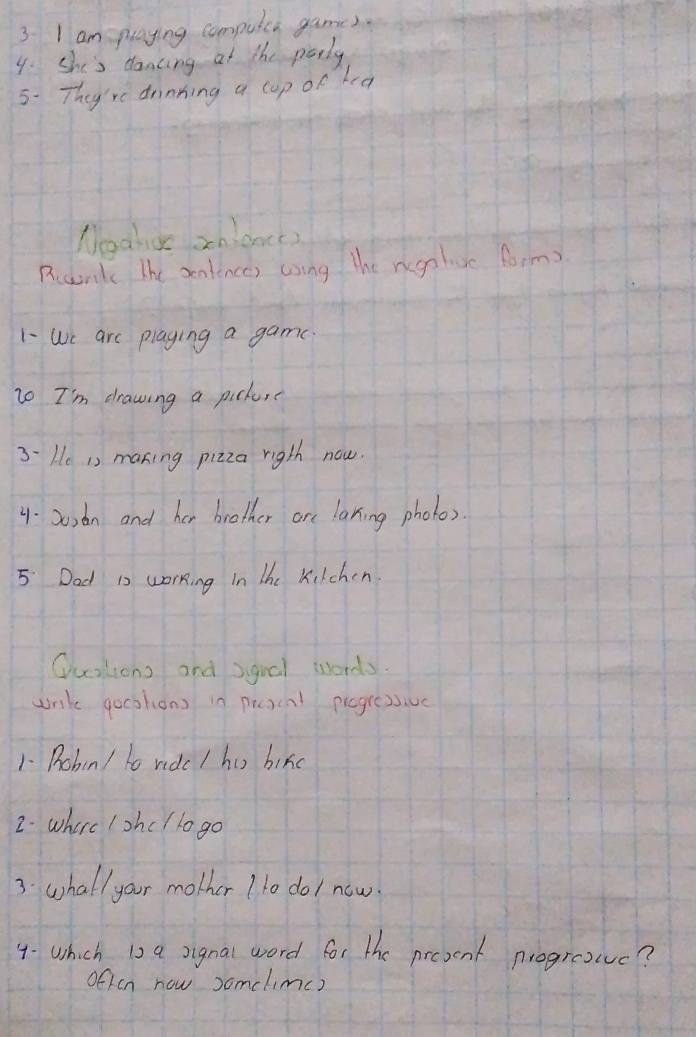 3- I am playing computer games.
4- She's dancing at the party
5- They're drinking a cup of tea
Negative sentences
Rewrite the sentences using the negative forms
1- We are playing a game.
20 I'm drawing a picture
3- He is making pizza rigth now.
4- Susan and her brother are taking photos.
5 Dad is working in the kitchen.
Questions and signal words.
write questions in present progressive
1- Robin / to ride / his bike
2- where / she / to go
3- what / your mother / to do / now.
4- which is a signal word for the present progresive?
often now sometimes